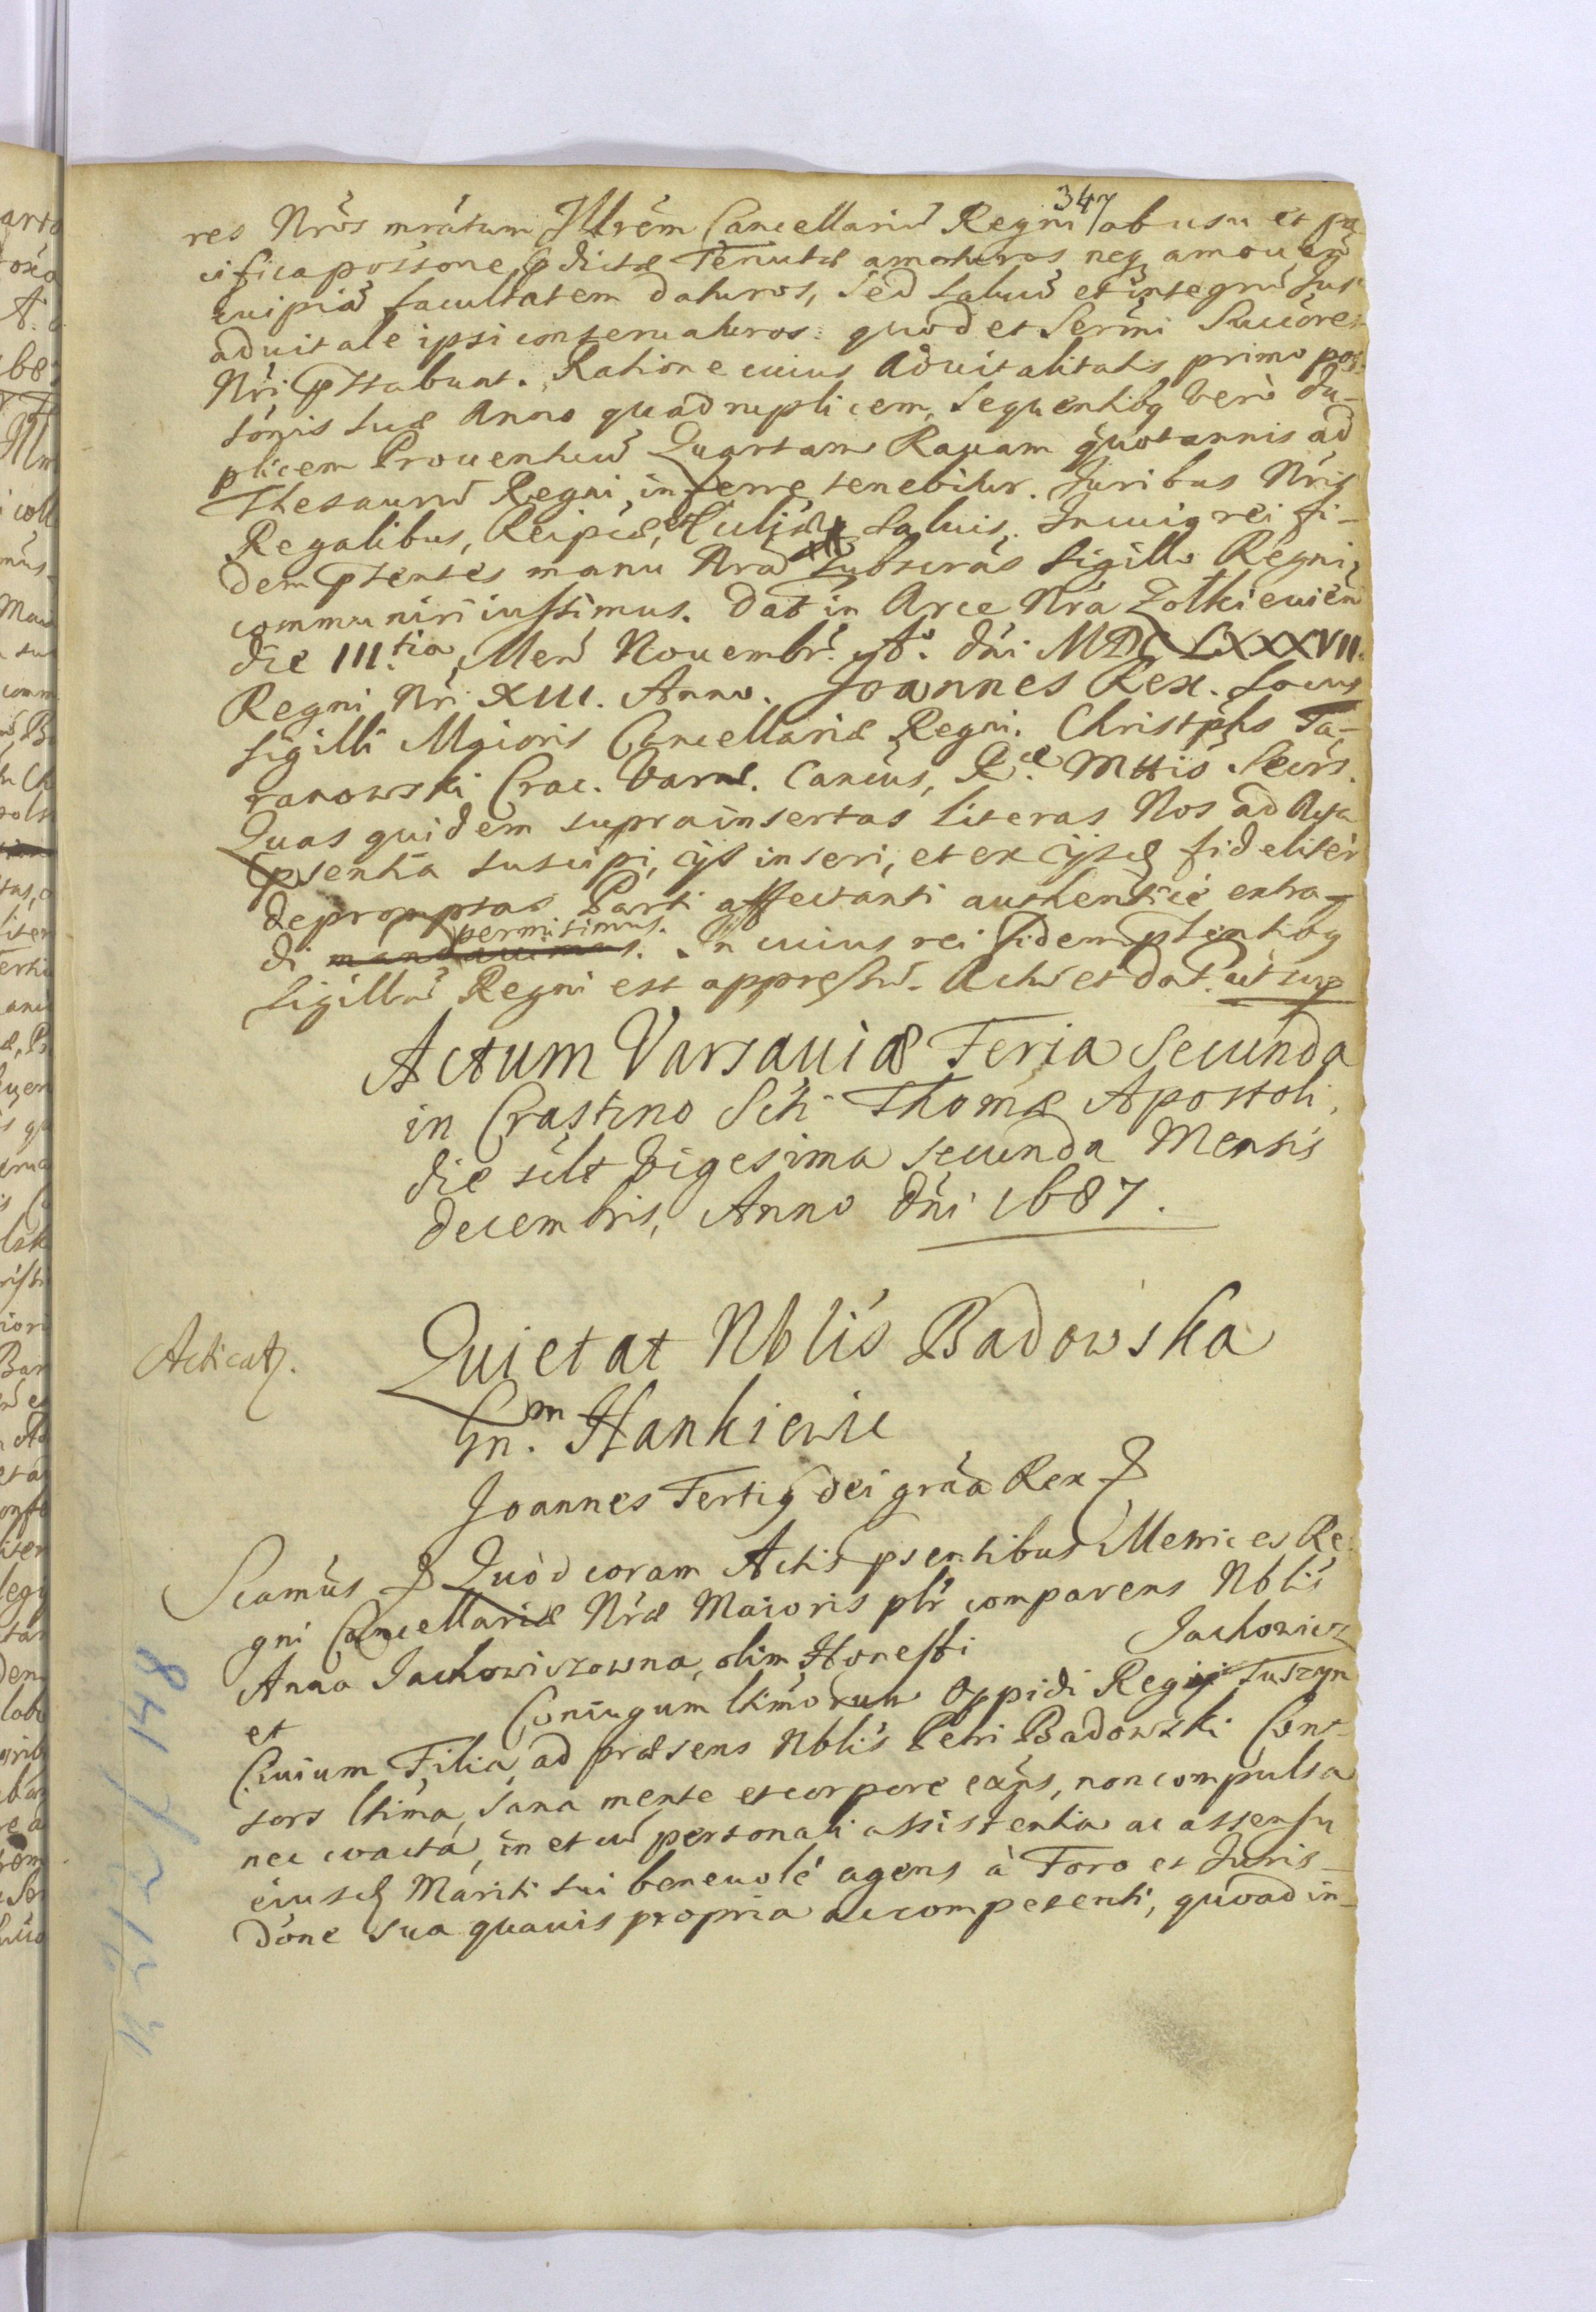 347
res Nros mratum Illrem Cancellariu Regni ab usu et pa
cifica possone pdictæ Tenutæ amoturos neq amouen
cuipia facultatem daturos, sed saluu et integru Jus
aduitale ipsi conseruaturos: quod et Sermi Succores
Nri pstabunt. Ratione cuius Aduitalitatis primo pos
sonis suæ Anno quadruplicem, sequentibq vero du-
plicem Prouentuu Quartam Rauam quotannis ad
Thesauru Regni inferre tenebitur. Juribus Nris
Regalibus, Reipcæ, et saluis. In cuiq rei fi-
dem pntes manu Nra Subscras sigillo Regni
communiri iussimus. Dat in Arce Nra Zolkieuien
die III.tia Men Nouembr. Ao. Dni MDCLXXXVII.
Regni Nri XIII. Anno. Joannes Rex. Locus
sigilli Maioris Cancellariæ Regni. Christphs Ta-
ranowski Crac. Varm. Cancus, R.æ Mttis Secrs.
Quas quidem suprainsertas literas Nos ad Acta
psentia suscipi, ijs inseri, et ex ijsd fideliter
depromptas Parti affectanti authentice extra-
permisimus.
di mandauimus. In cuius rei fidem psentibq
sigillu Regni est appressu. Actu et Dat. ut sup
Actum Varsauiæ Feria Secunda
in Crastino Scti Thomæ Apostoli,
die silt Vigesima secunda Mensis
Decembris, Anno Dni 1687.
Acticat.
Quietat Nblis Badowska
Gn.m Hankiewic
Joannes Tertiq Dei gràa Rex &
Scamus & Quòd coram Actis psentibus Metrices Re
gni Cancellariæ Nræ Maioris plr comparens Nblis
Anna Jachowiczowna, olim Honesti Jachowicz
et Coniugum ltimorum Oppidi Regij Tuszyn
Ciuium Filia, ad præsens Nblis Petri Badowski Cons-
sors ltima, sana mente et corpore exns, non compulsa
nec coacta, in et cu personali assistentia ac assensu
eiusd Mariti sui beneuolè agens à Foro et Juris-
done sua quauis propria ac competenti, quoad in-